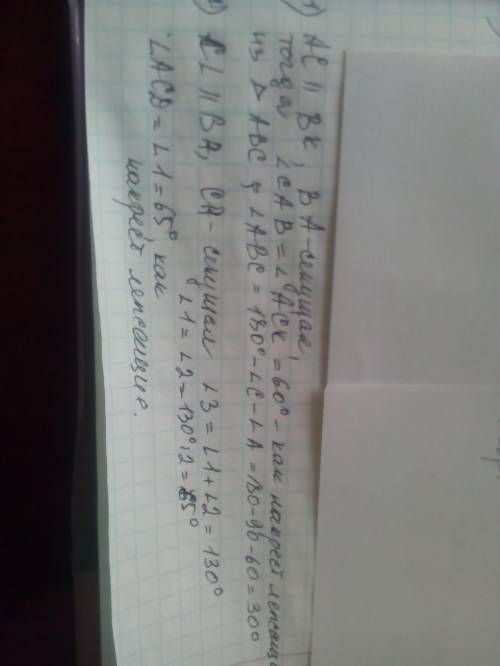 1) AC || BK, BA-секущая,
тогда ∠CAB = ∠ACK = 60° - как накрест лежащи
из △ ABC, ∠ABC = 180° - ∠C - ∠A = 180 - 90 - 60 = 30°
2) CL || BA, CA - секущая ∠3 = ∠1 + ∠2 = 130°
∠1 = ∠2 = 130° : 2 = 65°
∠ACD = ∠1 = 65° как
накрест лежащие.